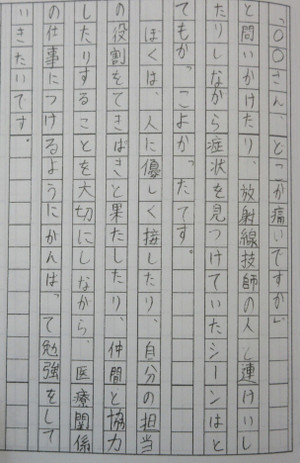 「〇〇さん、どこが痛いですか」
と問いかけたり、放射線技師の人と連けいし
たりしながら症状を見つけていたシーンはと
てもかっこよかったです。
　ぼくは、人に優しく接したり、自分の担当
の役割をてきぱきと果たしたり、仲間と協力
したりすることを大切にしながら、医療関係
の仕事につけるようにがんばって勉強をして
いきたいです。